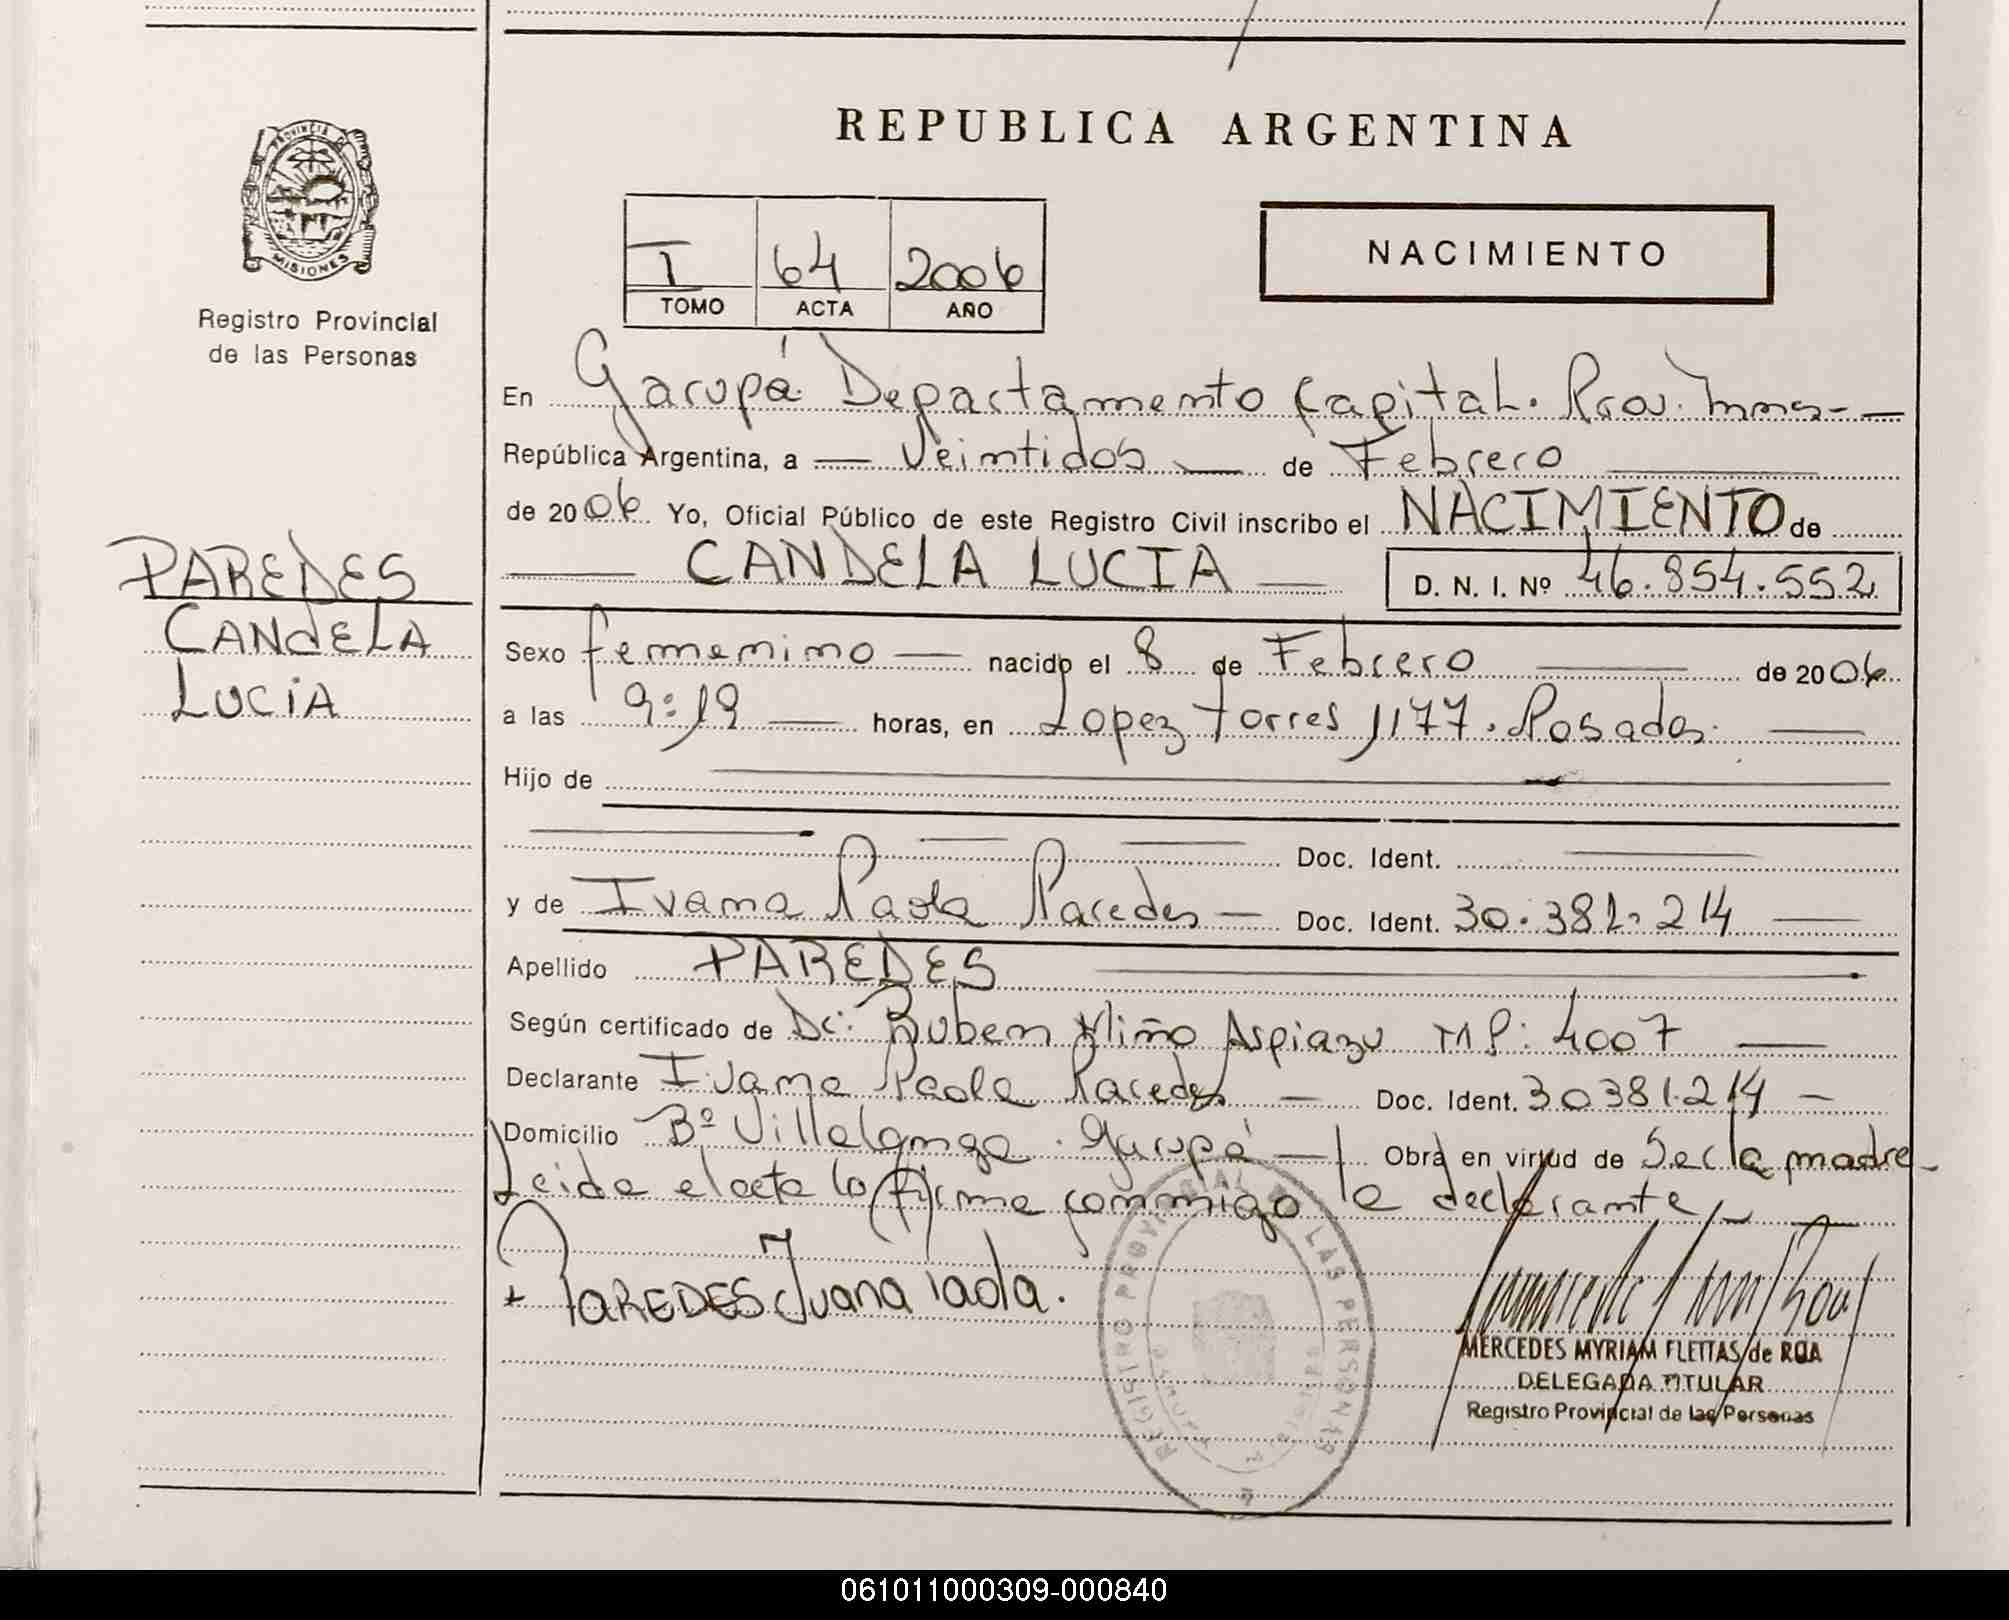 REPUBLICA ARGENTINA
PROVINCIA DE
MISIONES
Registro Provincial
de las Personas
I 64 2006
TOMO ACTA AÑO
NACIMIENTO
En Garupá Departamento Capital. Prov. Mnes-
República Argentina, a Veintidos de Febrero
de 2006. Yo, Oficial Público de este Registro Civil inscribo el NACIMIENTO de
CANDELA LUCIA D. N. I. Nº 46.854.552
PAREDES
CANDELA
LUCIA
Sexo femenino nacido el 8 de Febrero de 2006
a las 9:19 horas, en Lopez Torres 1177. Posadas.
Hijo de
Doc. Ident.
y de Ivana Paola Paredes - Doc. Ident. 30.381.214
Apellido PAREDES
Según certificado de Dr: Ruben Miño Aspiazu MP: 4007
Declarante Ivana Paola Paredes - Doc. Ident. 30381.214 -
Domicilio Bº Villalonga. Garupá - Obra en virtud de Ser la madre-
Leida el acta la firma conmigo la declarante,-
+ PAREDES Ivana Paola.
REGISTRO PROVINCIAL DE LAS PERSONAS
MERCEDES MYRIAM FLEITAS de ROA
DELEGADA TITULAR
Registro Provincial de las Personas
061011000309-000840